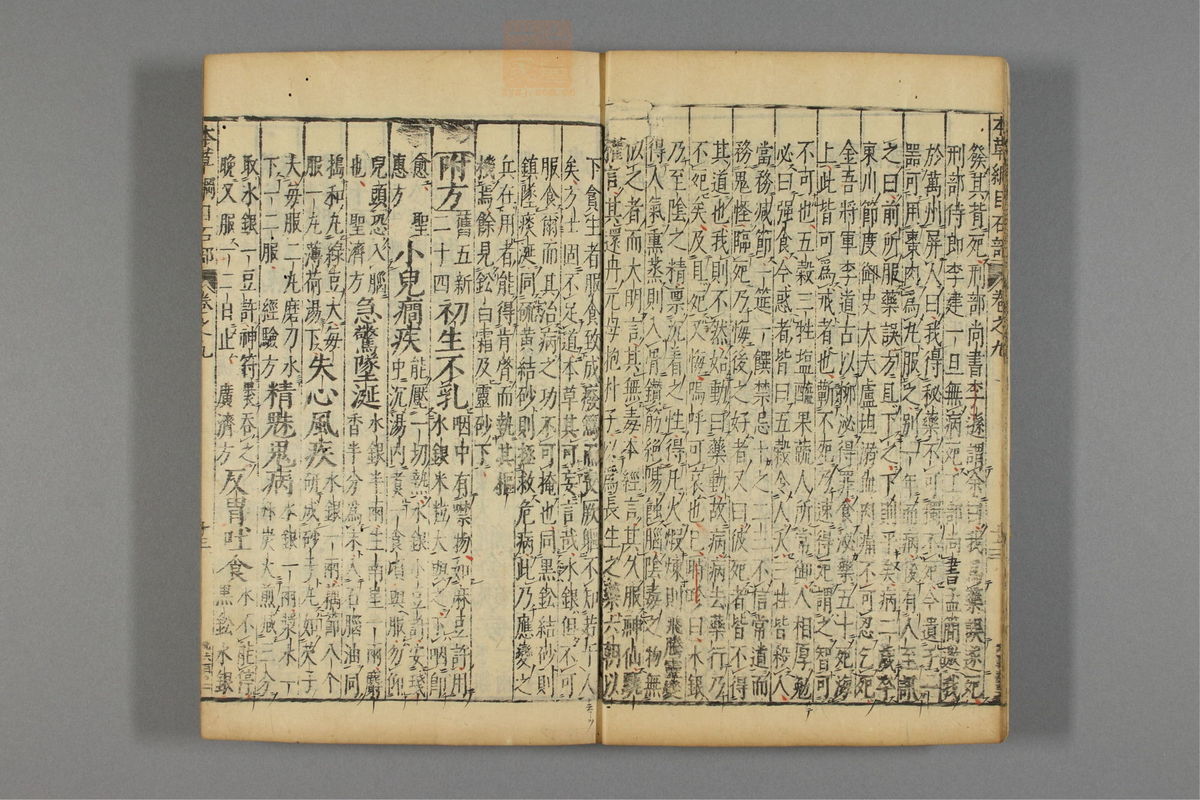 本草綱目石部 卷之九
發其背死刑部尚書李遜謂余曰我爲藥誤遂死
刑部侍郎李建一旦無病死工部尚書孟簡邀我
於萬州屏人曰我得秘藥不可獨不死今遺子一
器可用棗肉爲丸服之別一年而病後有人至訊
之曰前所服藥誤方且下之下則平矣病二歲卒
東川節度御史大夫盧坦溺血肉痛不可忍乞死
金吾將軍李道古以柳泌得罪食泌藥五十死海
上此皆可爲戒者也蘄不死乃速得死謂之智可
不可也五穀三牲塩醯果蔬人所常御人相厚勉
必曰强食今惑者皆曰五穀令人夭三牲皆殺人
當務減節一筵之饌禁忌十之二三不信常道而
務鬼怪臨死乃悔後之好者又曰彼死者皆不得
其道也我則不然始動曰藥動故病病去藥行乃
不死矣及且死又悔嗚呼可哀也已時珍曰水銀
乃至陰之精稟沉着之性得凡火煅煉則飛騰靈變
得人氣熏蒸則入骨鑽筋絕陽蝕腦陰毒之物無
似之者而大明言其無毒本經言其久服神仙甄
權言其還丹元母抱朴子以爲長生之藥六朝以
下貪生者服食致成廢篤而喪厥軀不知若干人
矣方士固不足道本草其可妄言哉水銀但不可
服食爾而其治病之功不可掩也同黑鉛結砂則
鎮墜痰涎同硫黃結砂則拯救危病此乃應變之
兵在用者能得肯綮而執其樞
機焉餘見鉛白霜及靈砂下
附方 舊五新二十四 初生不乳 咽中有噤物如麻豆許用水銀米粒大與之下咽即
愈聖惠方 小兒癇疾 能壓一切熱水銀小豆許安盞中沉湯內煮一食頃與服勿仰
兒頭恐入腦也聖濟方 急驚墜涎 水銀半兩生南星一兩麝香半分爲末入石腦油同
搗和丸綠豆大每服一丸薄荷湯下 失心風疾 水銀一兩藕節八个研成砂丸如芡子
大每服二丸磨刀水下一二服經驗方 精魅鬼病 水銀一兩漿水一升炭火煎減三分
取水銀一豆許神符裹吞之晚又服一二日止廣濟方 反胃吐食 水不能停黑鉛水銀
本草綱目石部 卷之九 十三